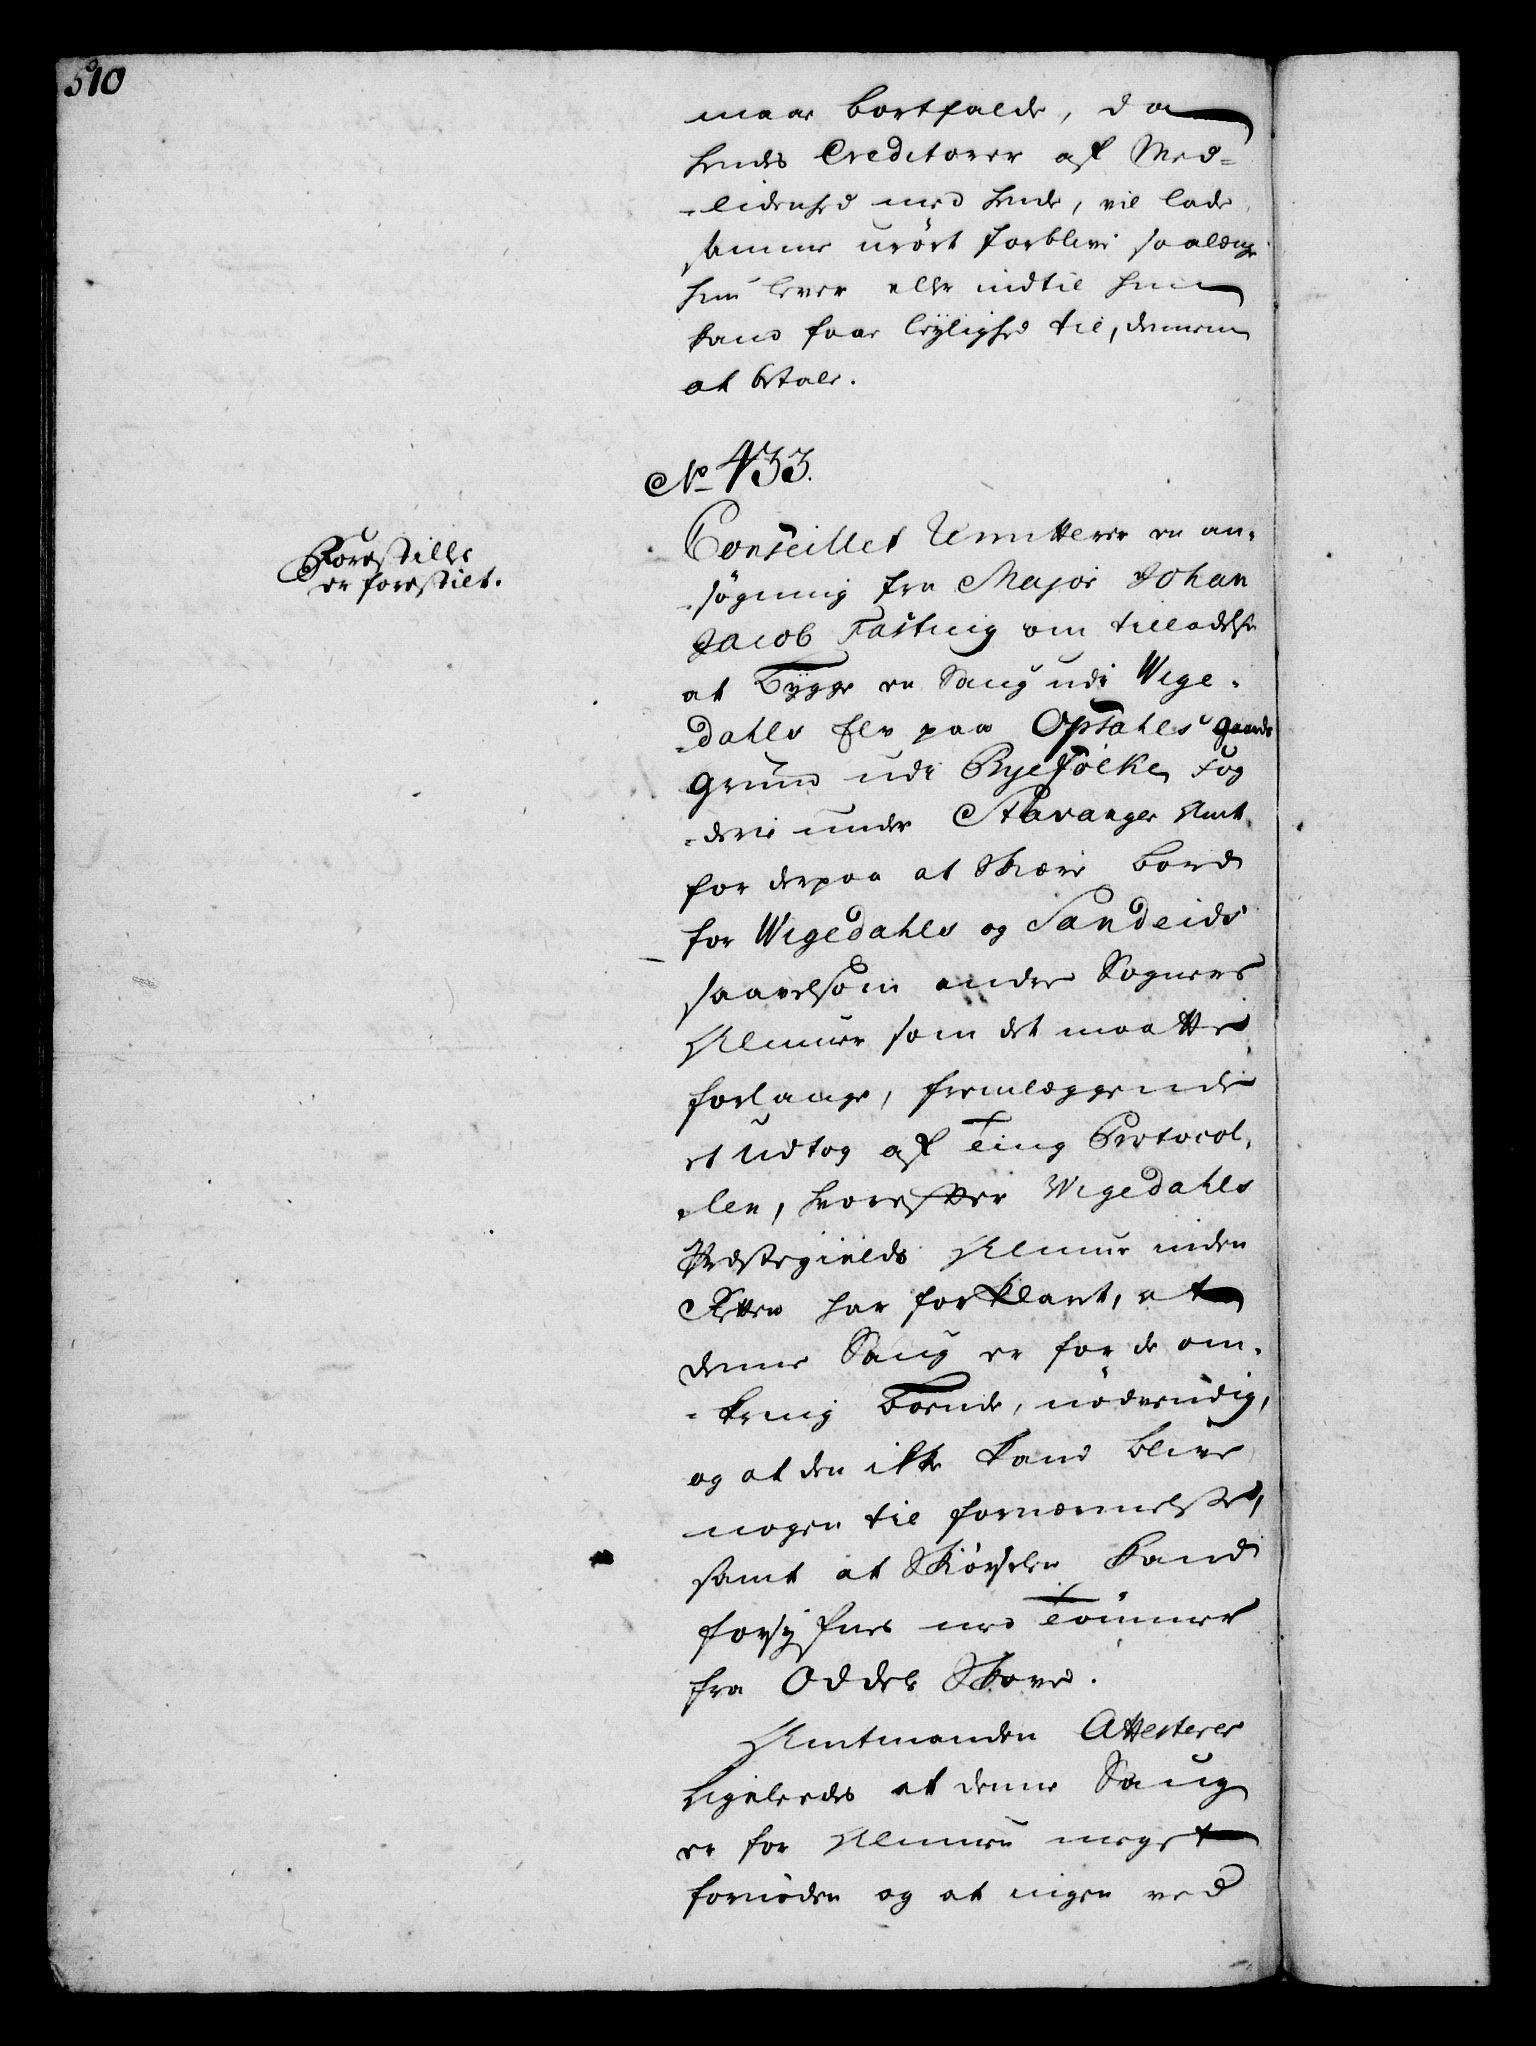 510
maae bortfalde, da
hendes Creditorer af Med-
-lidenhed med hende, vil lade
samme urørt forblive saalænge
hun lever eller indtil hun
kand faae leylighed til, dennem
at betale.
No 433.
Forestilles
er forestilt.
Conseillet Remitterer en an-
-søgning fra Major Johan
Jacob Fasting om tilladelse
at bygge en Saug udi Wige-
-dahls Elv paa Opsahls gaards
grund udi Ryefölke Fog
-derie under Stavanger Amt,
for derpaa at skære bord
for Wigedahls og Sandeids
saavelsom andre Sogners
Almue som det maatte
forlange, fremlæggende
et Udtog af Ting Protocol-
-len, hvorefter Wigedahls
Præstegields Almue inden
Retten har forklaret, at
denne Saug er for de om-
-kring boende, nødvendig,
og at den ikke kand blive
nogen til fornærmelse,
samt at Skörselen kand
forsyfnes med Tömmer
fra Oddels Skove.
Amtmanden Attesterer
ligeledes at denne Saug
er for Almuen meget
fornöden og at ingen ved